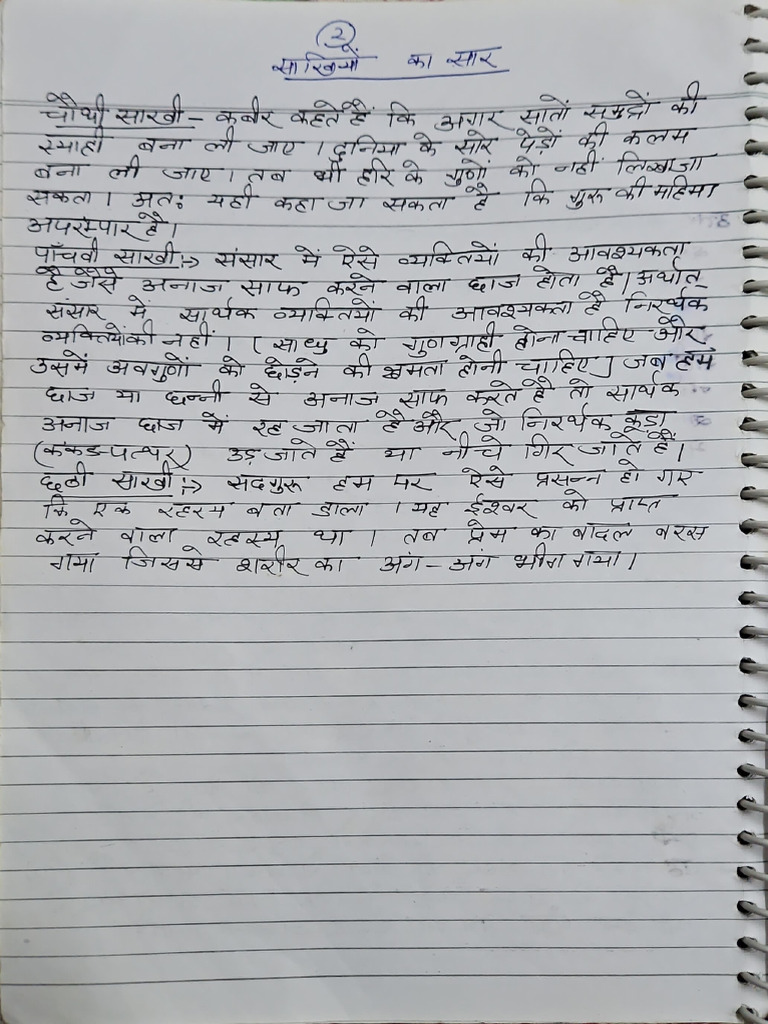 2
साखियों का सार
चौथी साखी - कबीर कहते हैं कि अगर सातों समुद्रों की
स्याही बना ली जाए । दुनिया के सारे पेड़ों की कलम
बना ली जाए । तब भी हरि के गुणों को नहीं लिखा जा
सकता । अतः यही कहा जा सकता है कि गुरू की महिमा
अपरम्पार है ।
पाँचवी साखी :→ संसार में ऐसे व्यक्तियों की आवश्यकता
है जैसे अनाज साफ करने वाला छाज होता है । अर्थात्
संसार में सार्थक व्यक्तियों की आवश्यकता है निरर्थक
व्यक्तियों की नहीं । [ साधु को गुणग्राही होना चाहिए और
उसमें अवगुणों को छोड़ने की क्षमता होनी चाहिए ] जब हम
छाज या छन्नी से अनाज साफ करते है तो सार्थक
अनाज छाज में रह जाता है और जो निरर्थक कूडा
(कंकड-पत्थर) उड़ जाते हैं या नीचे गिर जाते हैं ।
छठी साखी :→ सदगुरू हम पर ऐसे प्रसन्न हो गए
कि एक रहस्य बता डाला । यह ईश्वर को प्राप्त
करने वाला रहस्य था । तब प्रेम का बादल बरस
गया जिससे शरीर का अंग - अंग भीग गया ।